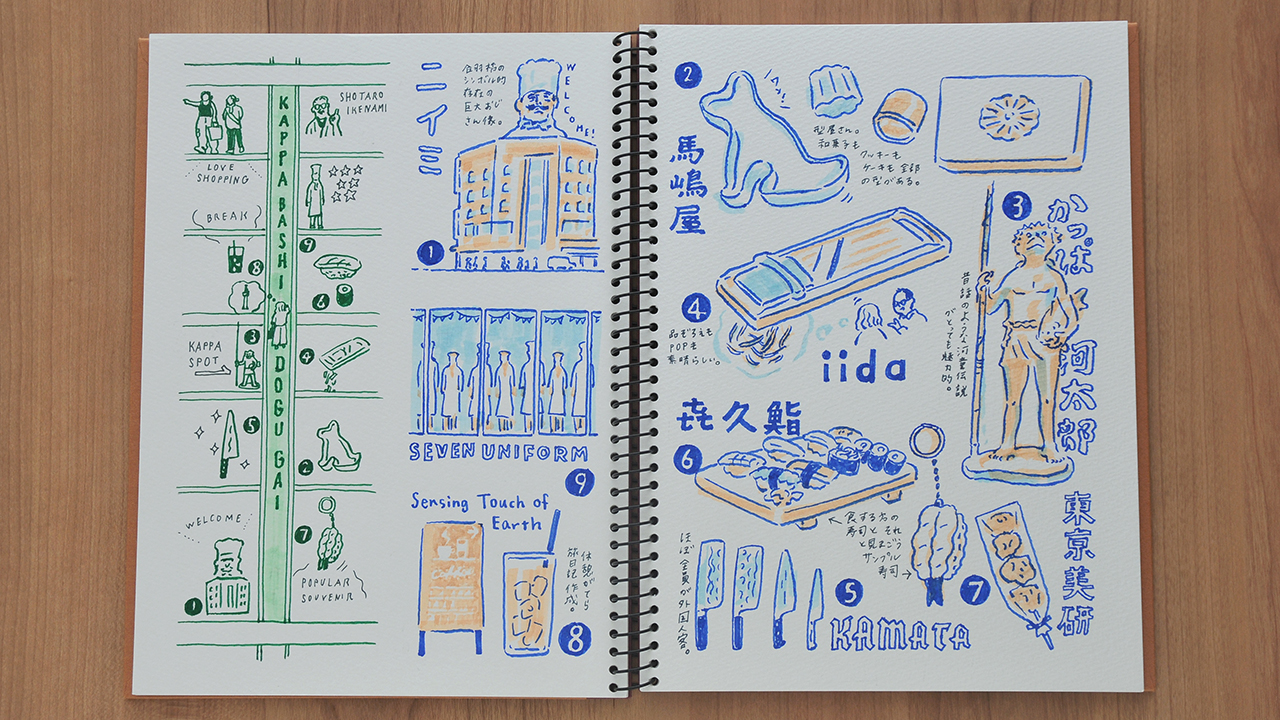 KAPPA BASHI DOGU GAI
SHOTARO
IKENAMI
LOVE
SHOPPING
BREAK
9
8
6
3
KAPPA
SPOT
4
5
2
WELCOME
7
1
POPULAR
SOUVENIR
ニイミ
合羽橋の
シンボル的
存在の
巨大おじ
さん像。
WELCOME!
1
SEVEN UNIFORM
9
Sensing Touch of
Earth
Coffee
休憩がてら
旅日記作成。
8
2
馬嶋屋
型屋さん。
和菓子も
クッキーも
ケーキも全部
の型がある。
3
かっぱ河太郎
昔話のような河童伝説
がとても魅力的。
4
品ぞろえも
POPも
素晴らしい。
iida
㐂久鮨
6
食する方の
寿司と それ
と見まごう
サンプル
寿司→
ほぼ全員が外国人客。
5
KAMATA
7
東京美研